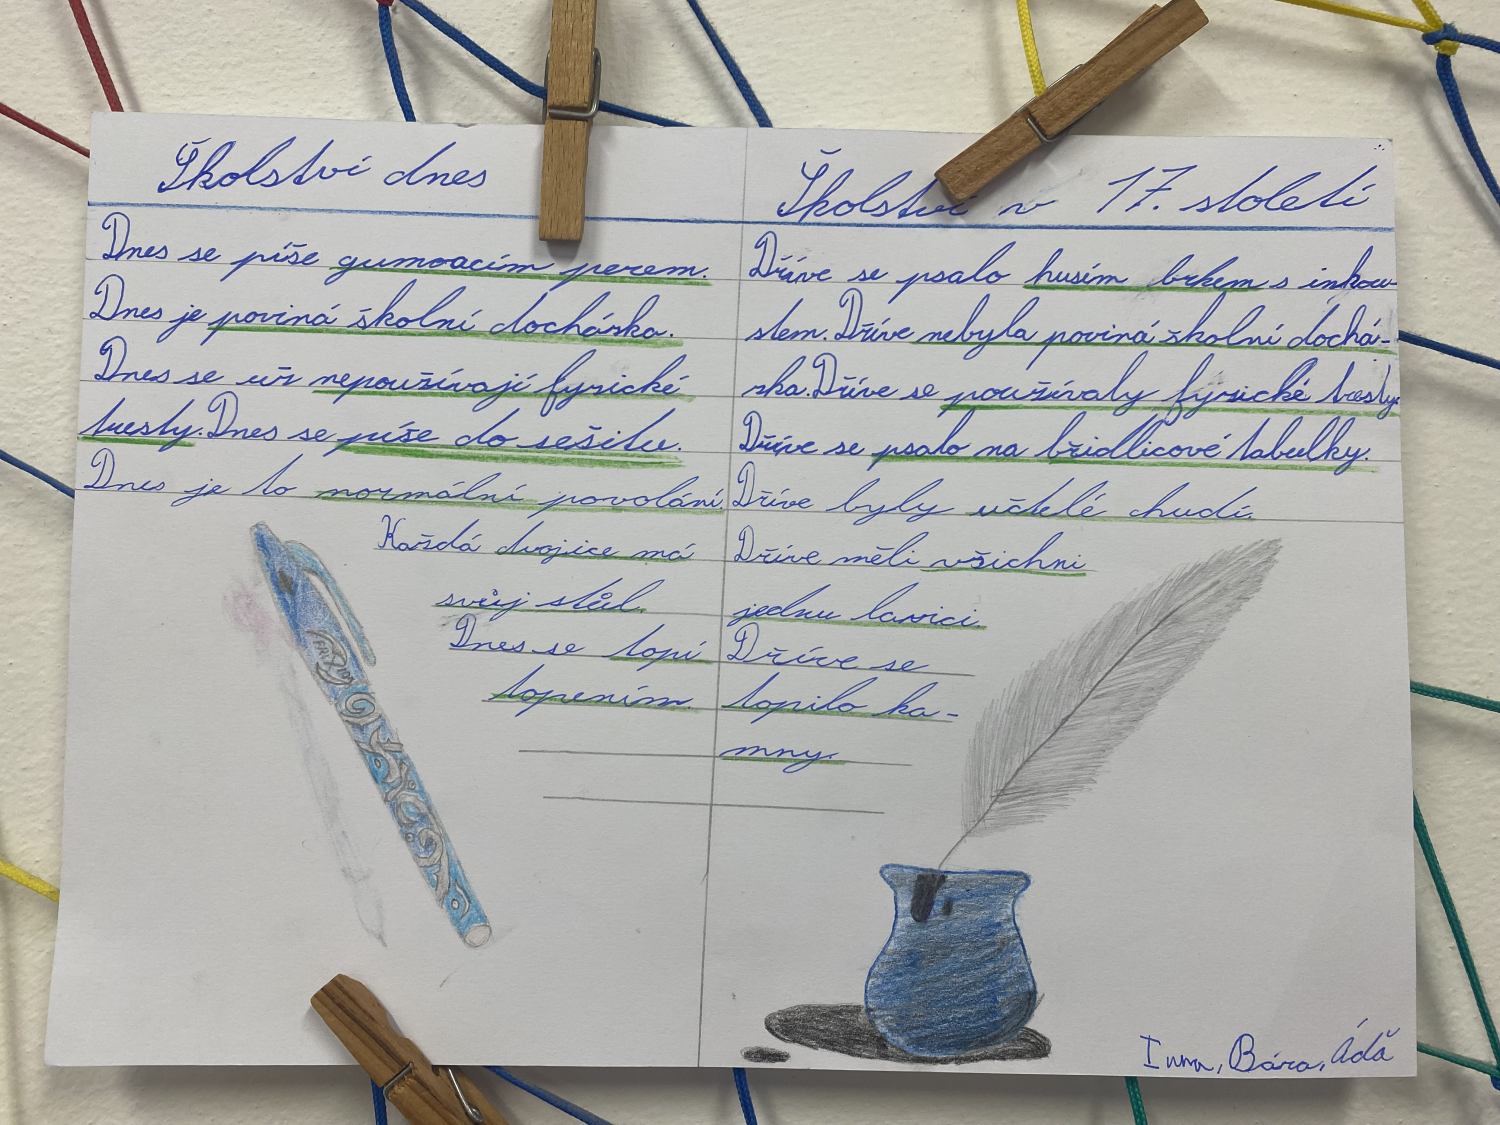 Školství dnes
Dnes se píše gumoacím perem.
Dnes je poviná školní docházka.
Dnes se už nepoužívají fyzické
tresty. Dnes se píše do sešitu.
Dnes je to normální povolání.
Každá dvojice má
svůj stůl.
Dnes se topí
topením.
Školství v 17. století
Dříve se psalo husím brkem s inkou-
stem. Dříve nebyla poviná školní dochá-
zka. Dříve se používaly fyzické tresty.
Dříve se psalo na břidlicové tabulky.
Dříve byly učitelé chudí.
Dříve měli všichni
jednu lavici.
Dříve se
topilo ka-
mny.
Bára, Ádă